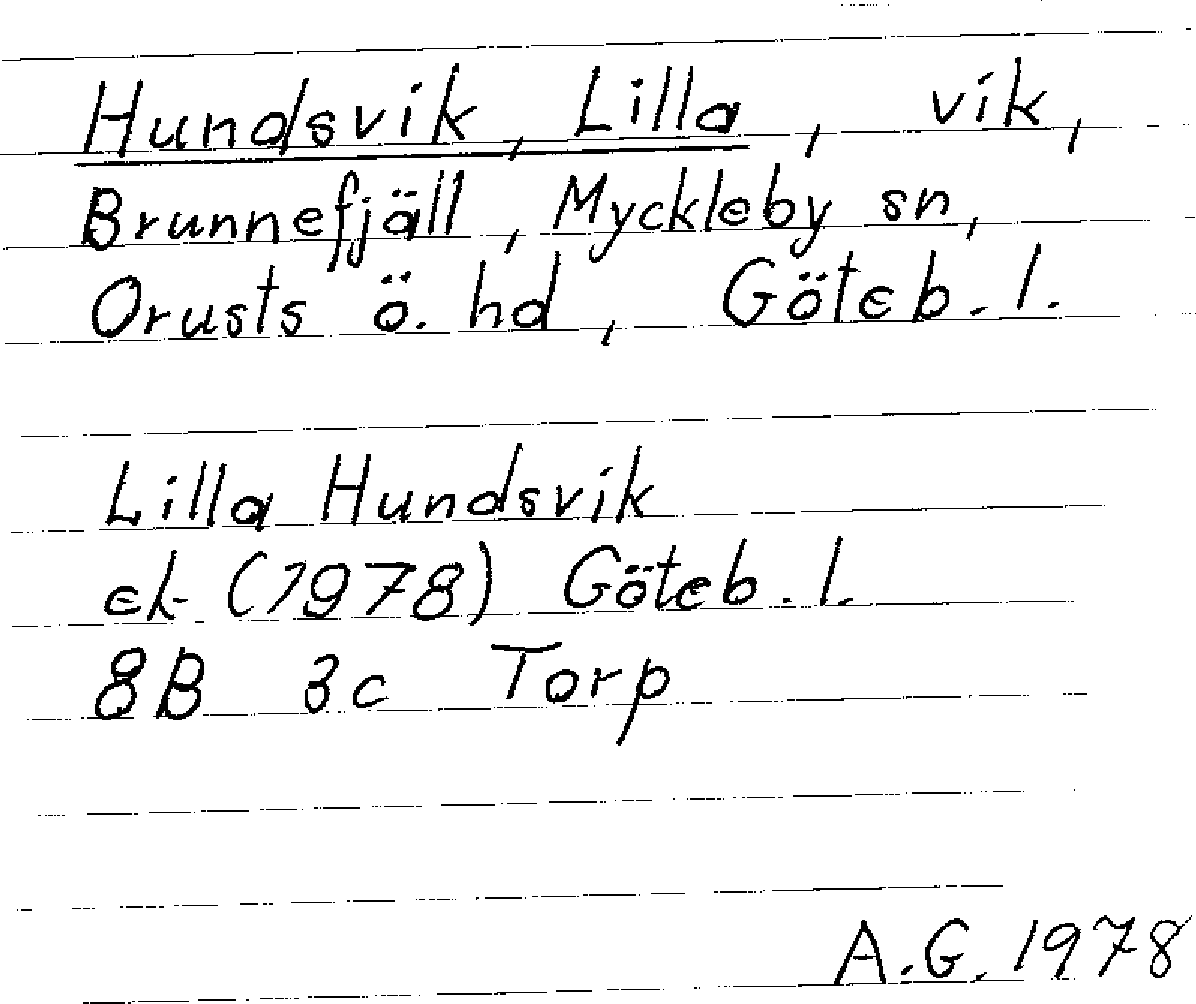 Hundsvik, Lilla, vik,
Brunnefjäll, Myckleby sn,
Orusts ö. hd, Göteb. l.
Lilla Hundsvik
ek (1978) Göteb. l.
8B 3c Torp
A.G. 1978